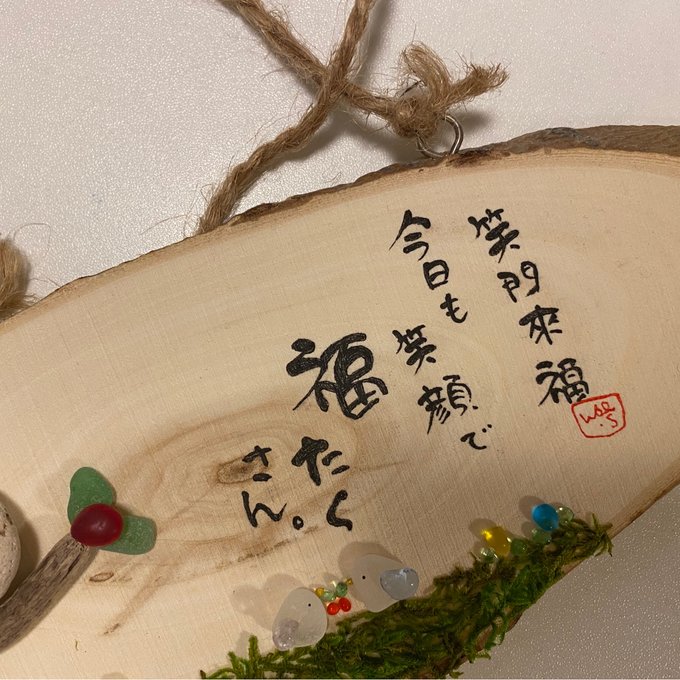 笑門来福
今日も
笑顔で
福たく
さん。